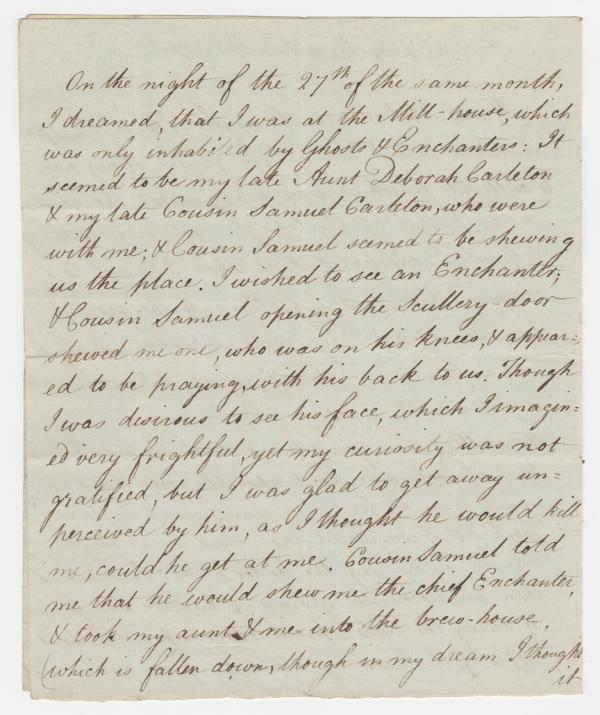 On the night of the 27th of the same month,
I dreamed, that I was at the Mill-house, which
was only inhabited by Ghosts & Enchanters: It
seemed to be my late Aunt Deborah Carleton
& my late Cousin Samuel Carleton, who were
with me; & Cousin Samuel seemed to be shewing
us the place. I wished to see an Enchanter;
& Cousin Samuel opening the Scullery-door
shewed me one, who was on his knees, & appear=
ed to be praying, with his back to us. Though
I was disirous to see his face, which I imagin=
ed very frightful, yet my curiosity was not
gratified, but I was glad to get away un=
perceived by him, as I thought he would kill
me, could he get at me. Cousin Samuel told
me that he would shew me the chief Enchanter,
& took my aunt & me into the brew-house,
(which is fallen down, though in my dream I thought
it